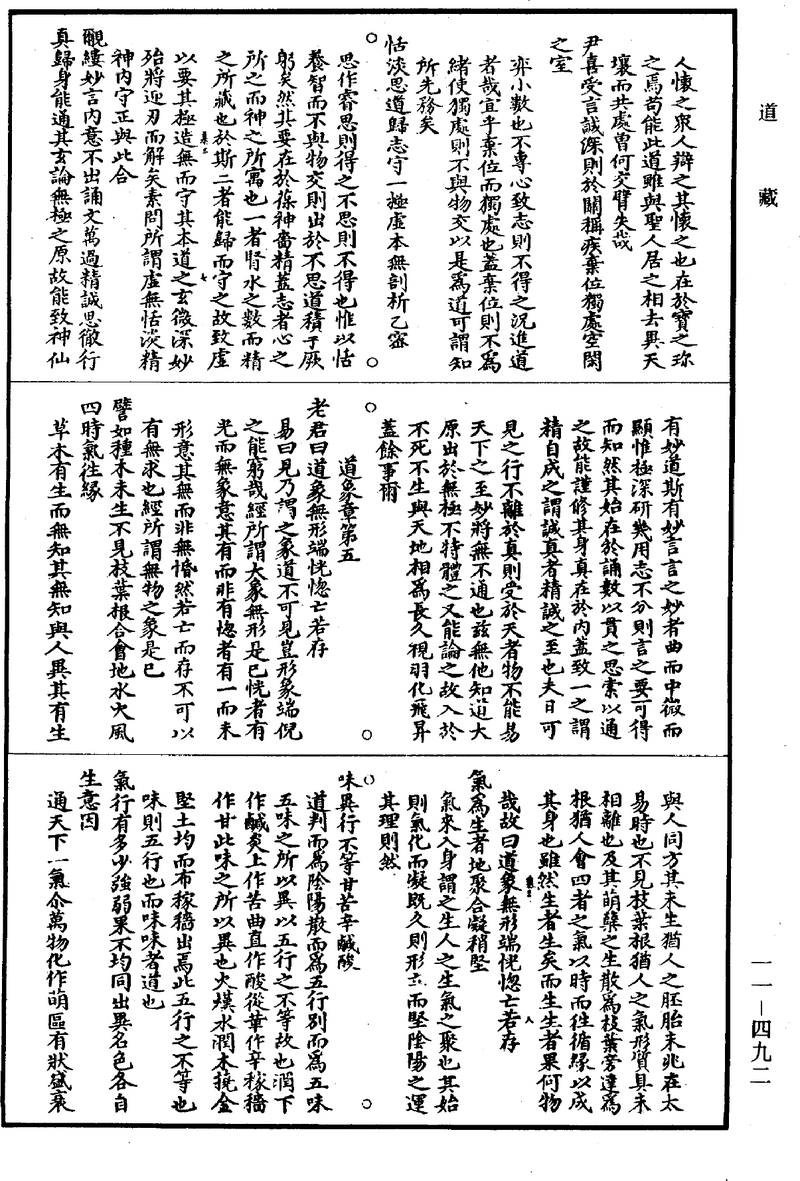 道藏
人懷之衆人辯之其懷之也在於寶之珎
之焉苟能此道雖與聖人居之相去異天
壤而共處曽何交臂失哉
尹喜受言誠深則於關稱疾棄位獨處空閑
之室
弈小數也不專心致志則不得之況進道
者哉宜乎棄位而獨處也蓋棄位則不爲
緒使獨處則不與物交以是爲道可謂知
所先務矣
恬淡思道歸志守一極虛本無剖析乙密
思作睿思則得之不思則不得也惟以恬
養智而不與物交則出於不思道積于厥
躬矣然其要在於葆神嗇精蓋志者心之
所之而神之所寓也一者腎水之數而精
之所藏也於斯二者能歸而守之故致虛
以要其極造無而守其本道之玄微深妙
殆將迎刃而解矣素問所謂虛無恬淡精
神內守正與此合
覼縷妙言內意不出誦文萬過精誠思徹行
真歸身能通其玄論無極之原故能致神仙
有妙道斯有妙言言之妙者曲而中微而
顯惟極深研幾用志不分則言之要可得
而知然其始在於誦數以貫之思索以通
之故能謹修其身真在於內蓋致一之謂
精自成之謂誠真者精誠之至也夫日可
見之行不離於真則受於天者物不能易
天下之至妙將無不通也玆無他知道大
原出於無極不特體之又能論之故入於
不死不生與天地相爲長久視羽化飛昇
蓋餘事爾
道象章第五
老君曰道象無形端恍惚亡若存
易曰見乃謂之象道不可見豈形象端倪
之能窮哉經所謂大象無形是已恍者有
光而無象意其有而非有惚者有一而未
形意其無而非無惛然若亡而存不可以
有無求也經所謂無物之象是已
譬如種木未生不見枝葉根合會地水火風
四時氣往緣
草木有生而無知其無知與人異其有生
與人同方其未生猶人之胚胎未兆在太
易時也不見枝葉根猶人之氣形質具未
相離也及其萌櫱之生散爲枝葉旁達爲
根猶人會四者之氣以時而往循緣以成
其身也雖然生者生矣而生生者果何物
哉故曰道象無形端恍惚亡若存
氣爲生者地聚合凝稍堅
氣來入身謂之生人之生氣之聚也其始
則氣化而凝既久則形立而堅陰陽之運
其理則然
味異行不等甘苦辛鹹酸
道判而爲陰陽散而爲五行別而爲五味
五味之所以異以五行之不等故也潤下
作鹹炎上作苦曲直作酸從革作辛稼穡
作甘此味之所以異也火熯水潤木撓金
堅土均而布稼穡出焉此五行之不等也
味則五行也而味味者道也
氣行有多少強弱果不均同出異名色各自
生意因
通天下一氣尒萬物化作萌區有狀盛衰
一一－四九二